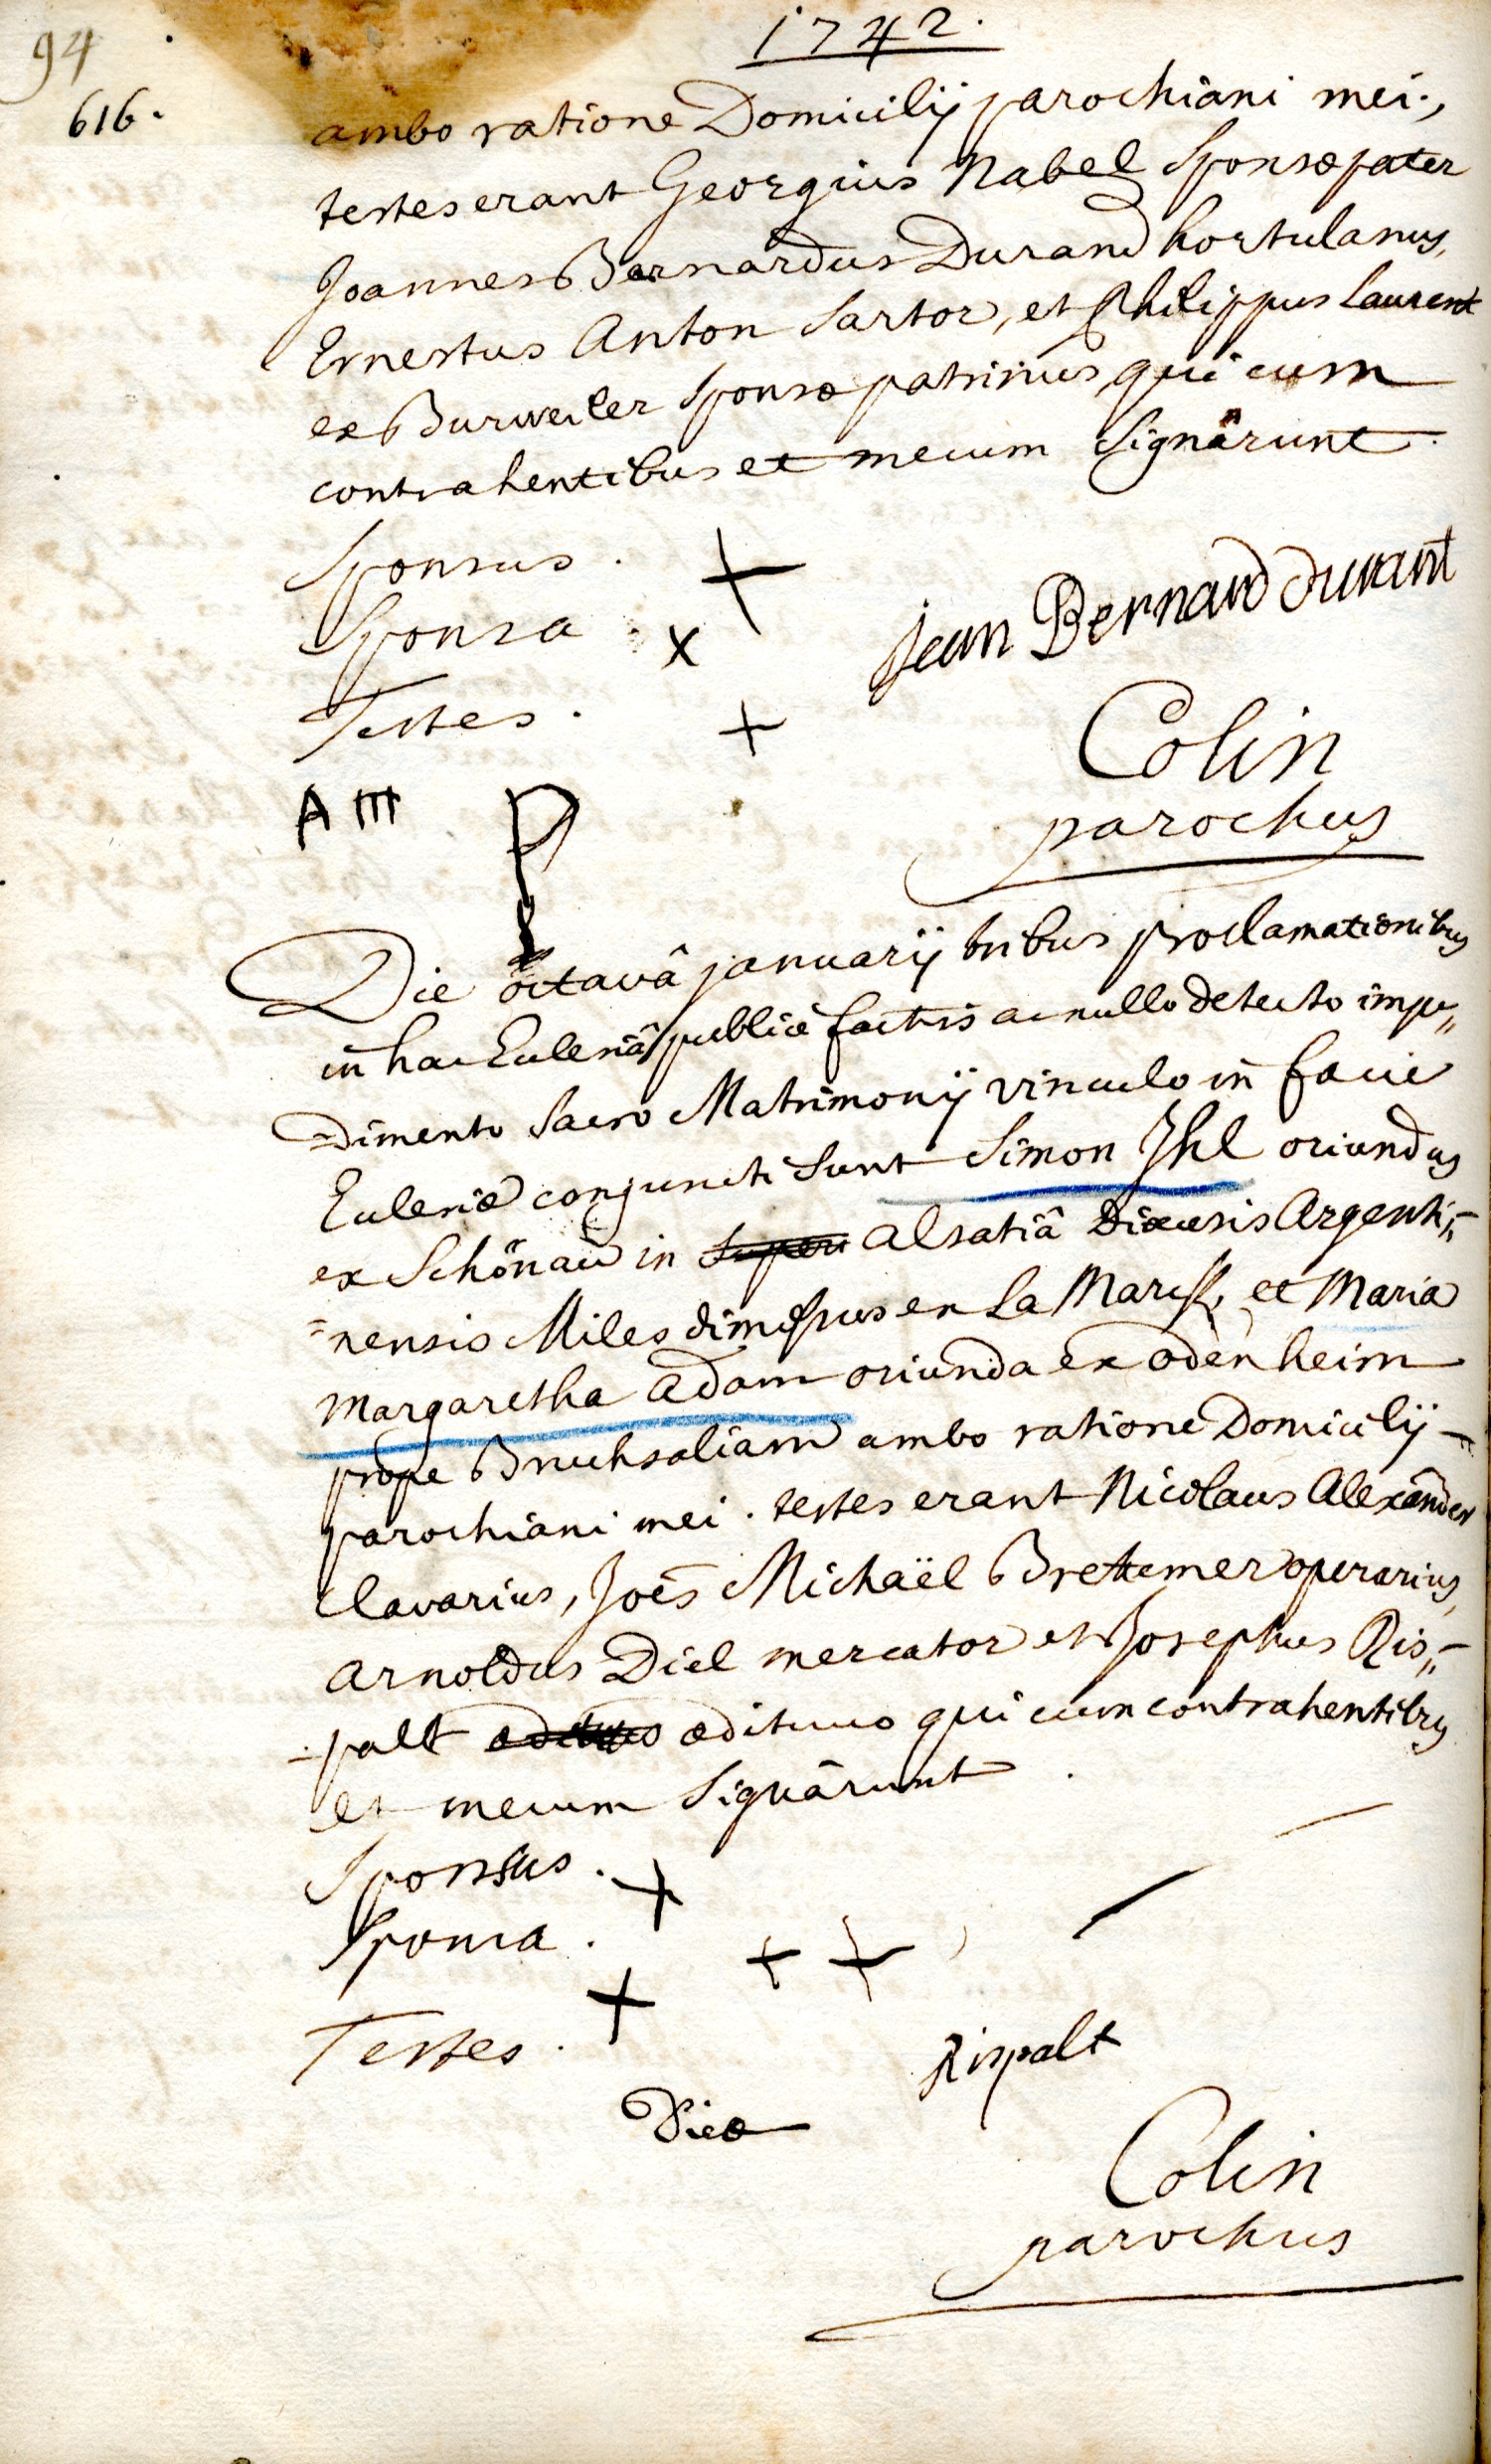 94
1742.
616.
ambo ratione Domicilij parochiani mei.,
testes erant Georgius Nabel Sponsæ pater
Joannes Bernardus Durand hortulanus,
Ernestus Anton Sartor, et Philippus Laurent
ex Burweiler Sponsæ patrinus, qui cum
contrahentibus et mecum Signârunt.
Sponsus. +
Sponsa. x
Jean Bernard durant
Testes. +
Colin
parochus
A III
Die octavâ januarij tribus proclamationibus
in hac Ecclesiâ publicè factis ac nullo detecto impe„
Dimento Sacro Matrimonij vinculo in facie
Ecclesiæ conjuncti Sunt Simon Ihl oriundus
ex Schönau in Alsatiâ Diœcesis Argenti„
nensis Miles dimissus en La Mark, et Maria
Margaretha Adam oriunda ex odenheim
prope Bruchsaliam ambo ratione Domicilij
parochiani mei. testes erant Nicolaus Alexander
clavarius, Joës Michaël Brettemer operarius,
Arnoldus Diel mercator et Josephus Ris„
palt ædituus qui cum contrahentibus
et mecum Signârunt.
Sponsus. +
Sponsa. + +
Testes. +
Rispalt
Colin
parochus